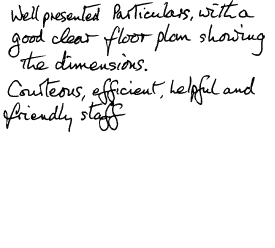 Well presented Particulars, with a
good clear floor plan showing
the dimensions.
Courteous, efficient, helpful and
friendly staff